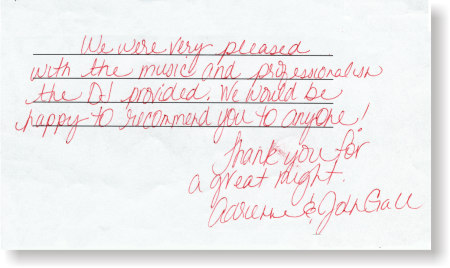 We were very pleased
with the music and professionalism
the DJ provided. We would be
happy to recommend you to anyone!
Thank you for
a great night.
Adrienne & John Gall